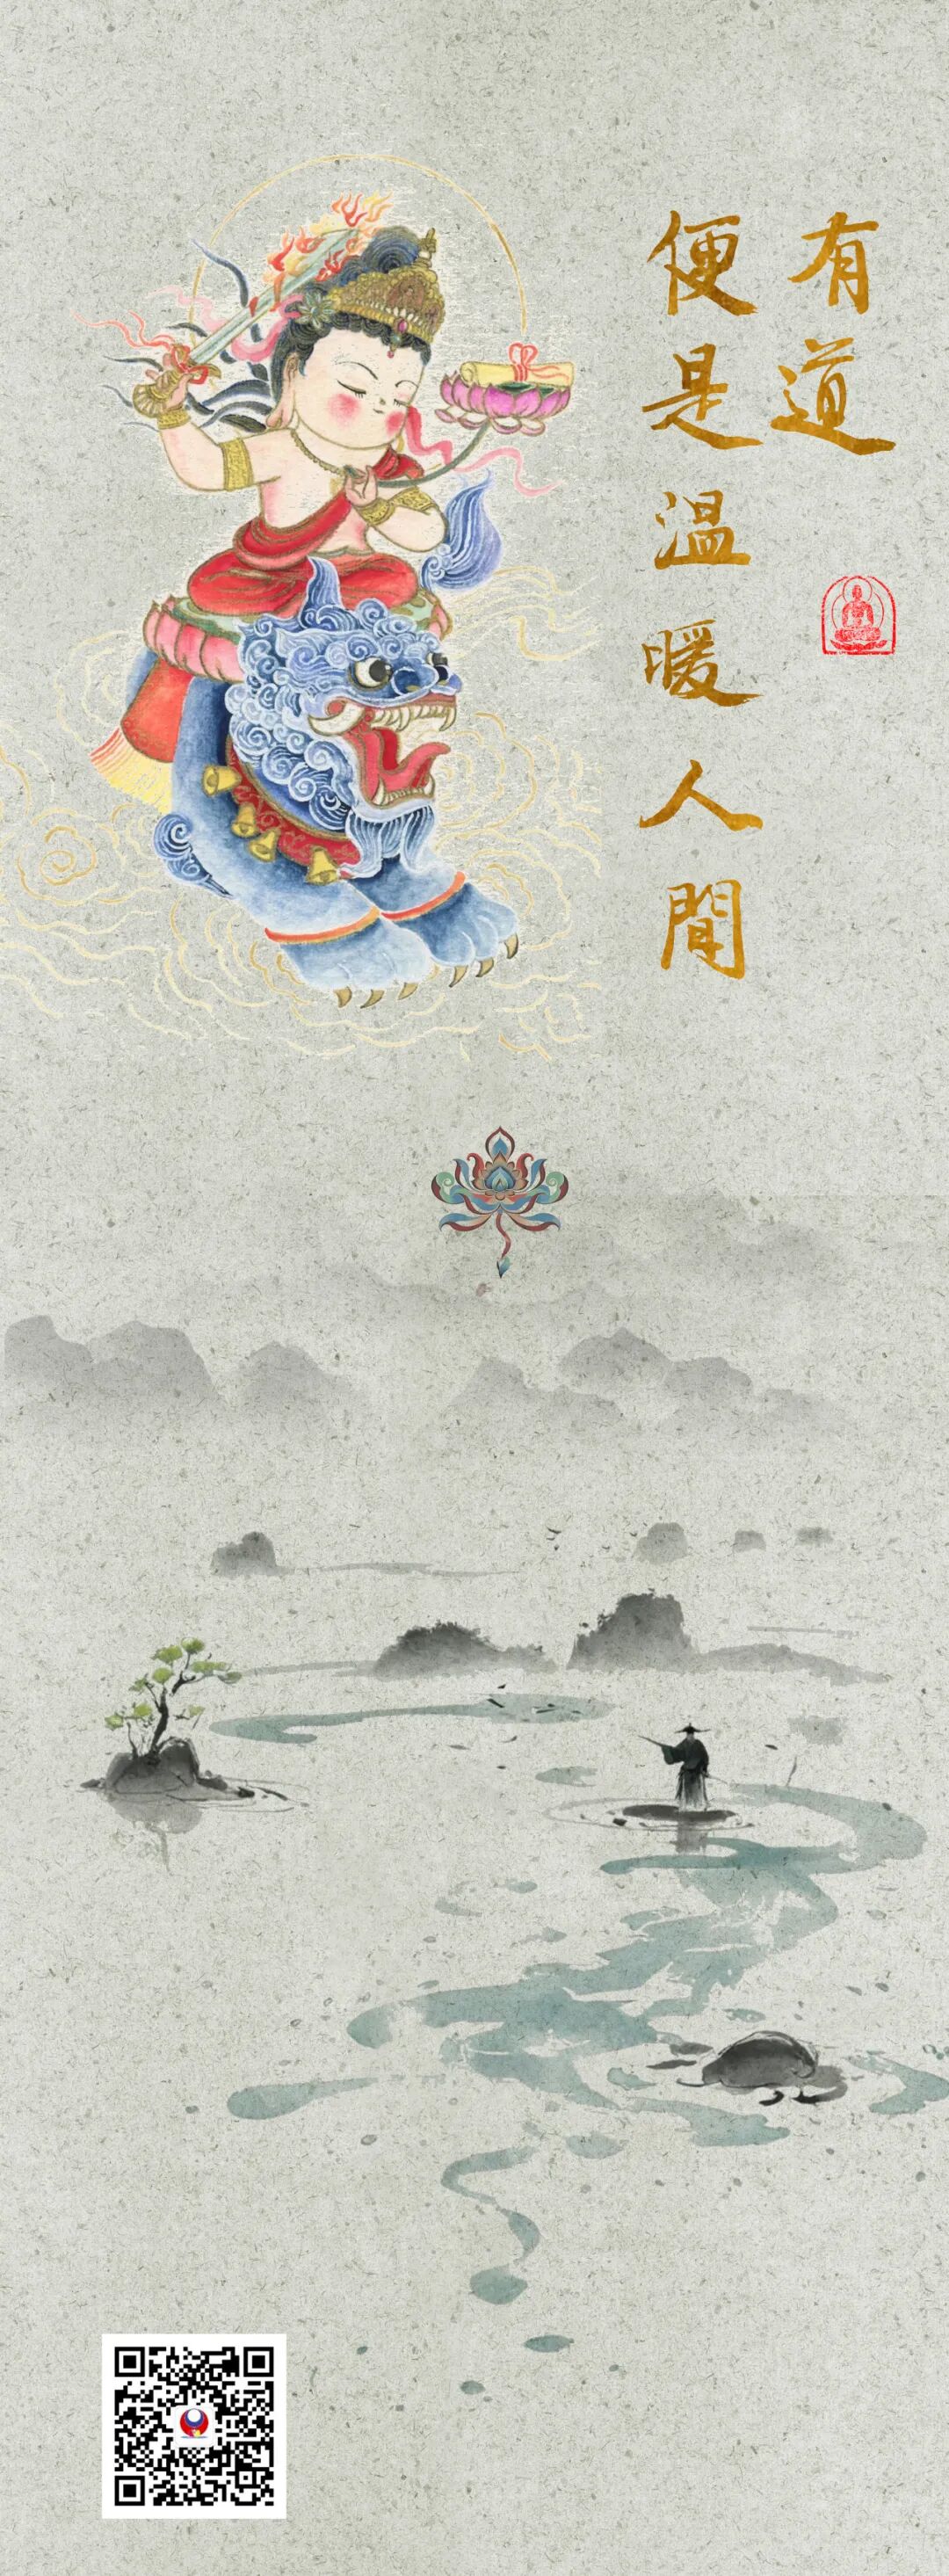 有道
便是溫暖人間